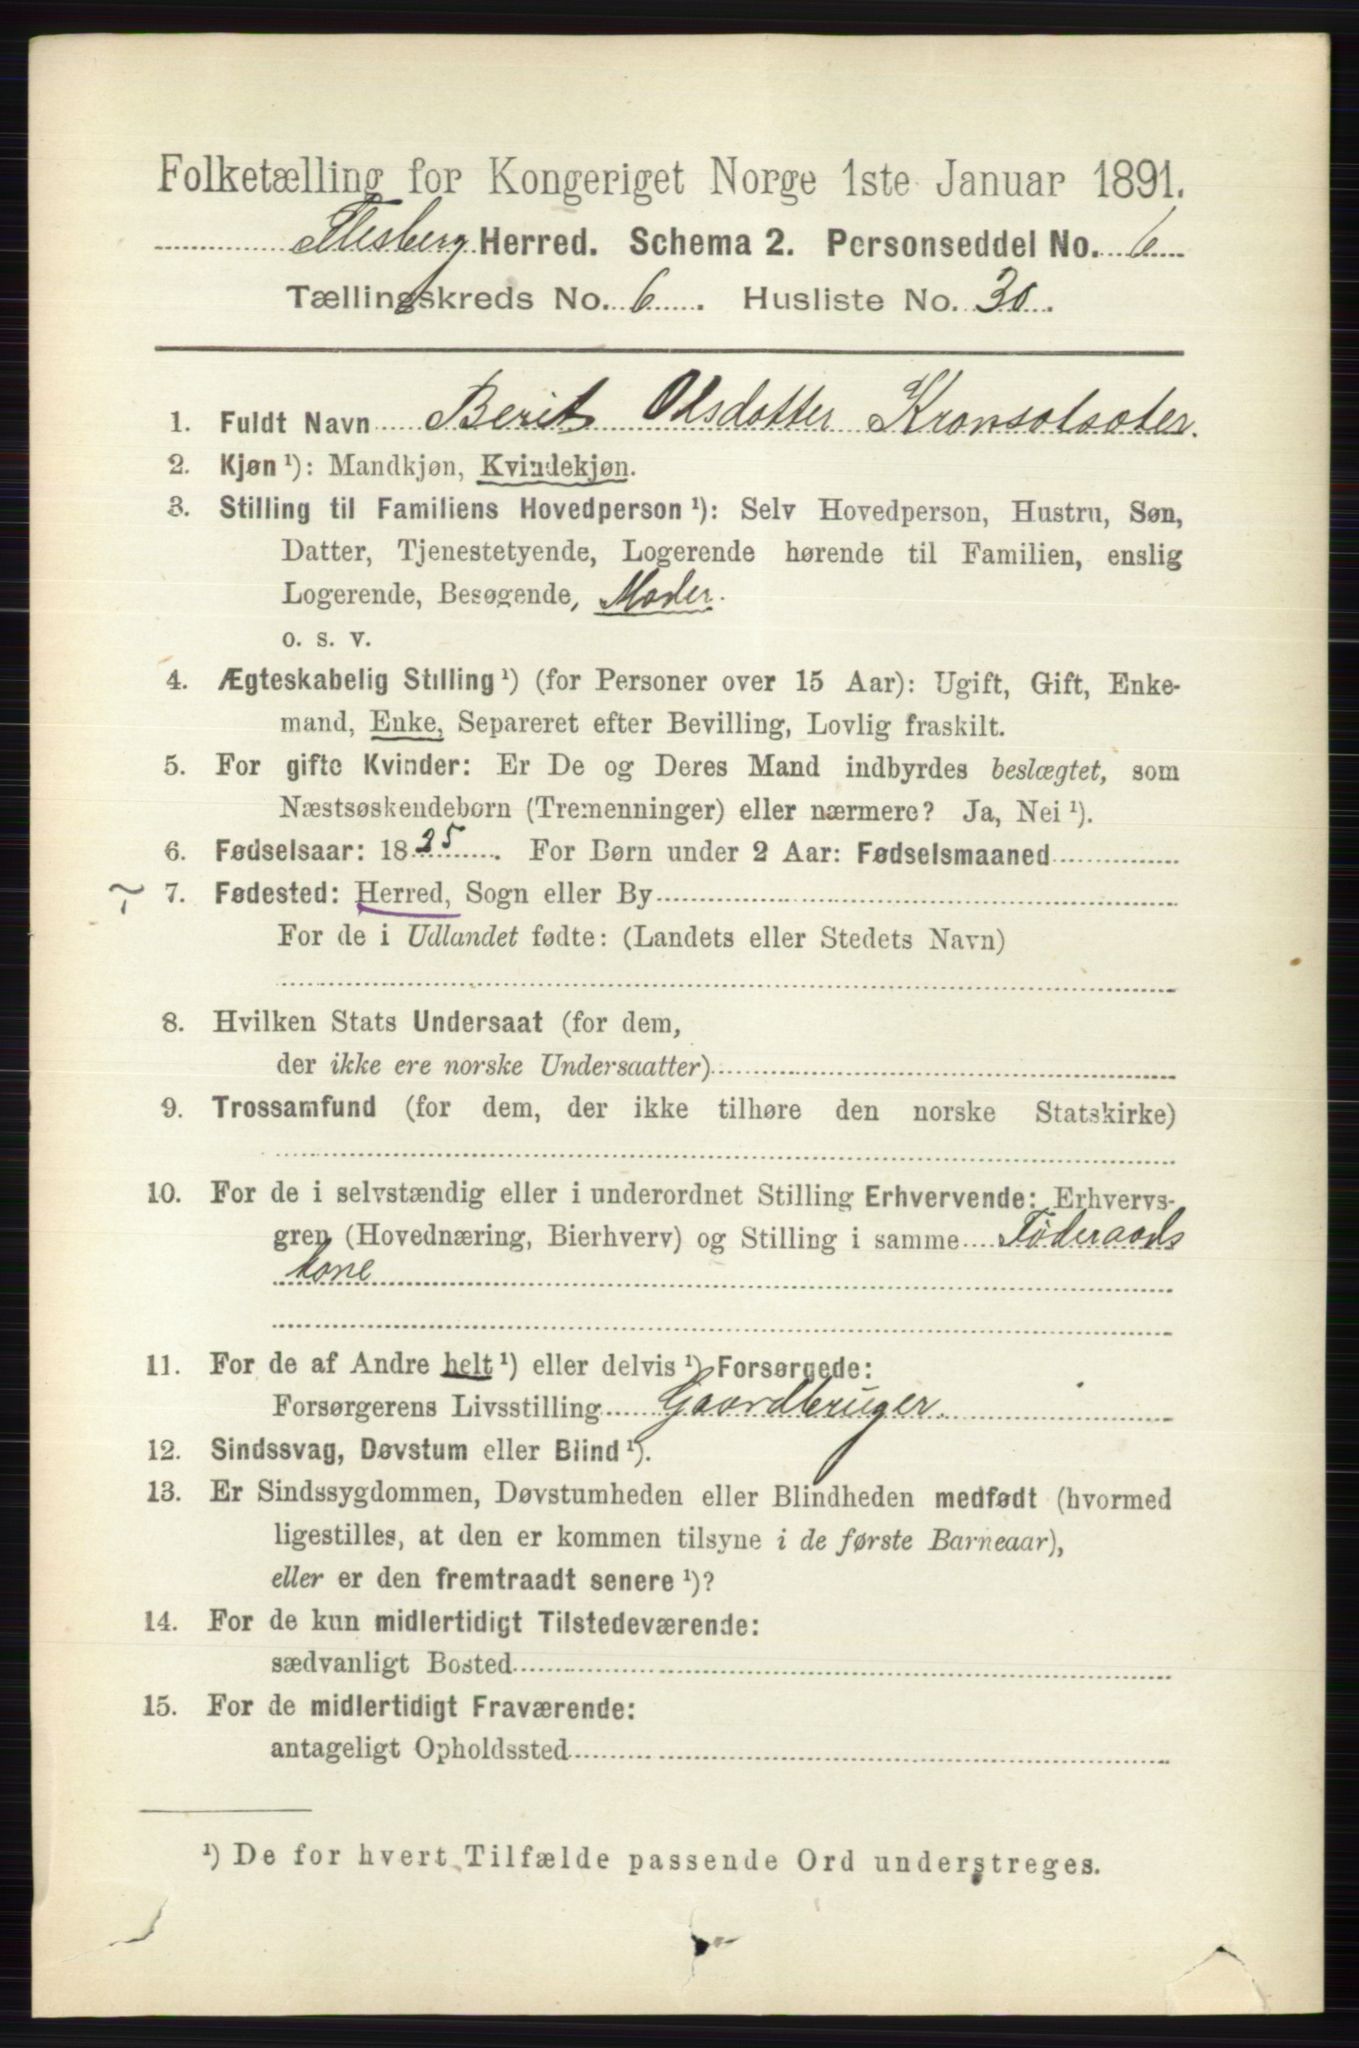 Folketælling for Kongeriget Norge 1ste Januar 1891.
Flesberg Herred. Schema 2. Personseddel No. 6
Tællingskreds No. 6. Husliste No. 30.
1. Fuldt Navn Berit Olsdatter
2. Kjøn ¹): Mandkjøn, Kvindekjøn.
3. Stilling til Familiens Hovedperson ¹): Selv Hovedperson, Hustru, Søn,
Datter, Tjenestetyende, Logerende hørende til Familien, enslig
Logerende, Besøgende, Moder.
o. s. v.
4. Ægteskabelig Stilling ¹) (for Personer over 15 Aar): Ugift, Gift, Enke-
mand, Enke, Separeret efter Bevilling, Lovlig fraskilt.
5. For gifte Kvinder: Er De og Deres Mand indbyrdes beslægtet, som
Næstsøskendebørn (Tremenninger) eller nærmere? Ja, Nei ¹).
6. Fødselsaar: 1825. For Børn under 2 Aar: Fødselsmaaned
7. Fødested: Herred, Sogn eller By
For de i Udlandet fødte: (Landets eller Stedets Navn)
8. Hvilken Stats Undersaat (for dem,
der ikke ere norske Undersaatter)
9. Trossamfund (for dem, der ikke tilhøre den norske Statskirke)
10. For de i selvstændig eller i underordnet Stilling Erhvervende: Erhvervs-
gren (Hovednæring, Bierhverv) og Stilling i samme Føderaads
kone
11. For de af Andre helt ¹) eller delvis ¹) Forsørgede:
Forsørgerens Livsstilling Gaardbruger.
12. Sindssvag, Døvstum eller Blind ¹).
13. Er Sindssygdommen, Døvstumheden eller Blindheden medfødt (hvormed
ligestilles, at den er kommen tilsyne i de første Barneaar),
eller er den fremtraadt senere ¹)?
14. For de kun midlertidigt Tilstedeværende:
sædvanligt Bosted
15. For de midlertidigt Fraværende:
antageligt Opholdssted
¹) De for hvert Tilfælde passende Ord understreges.